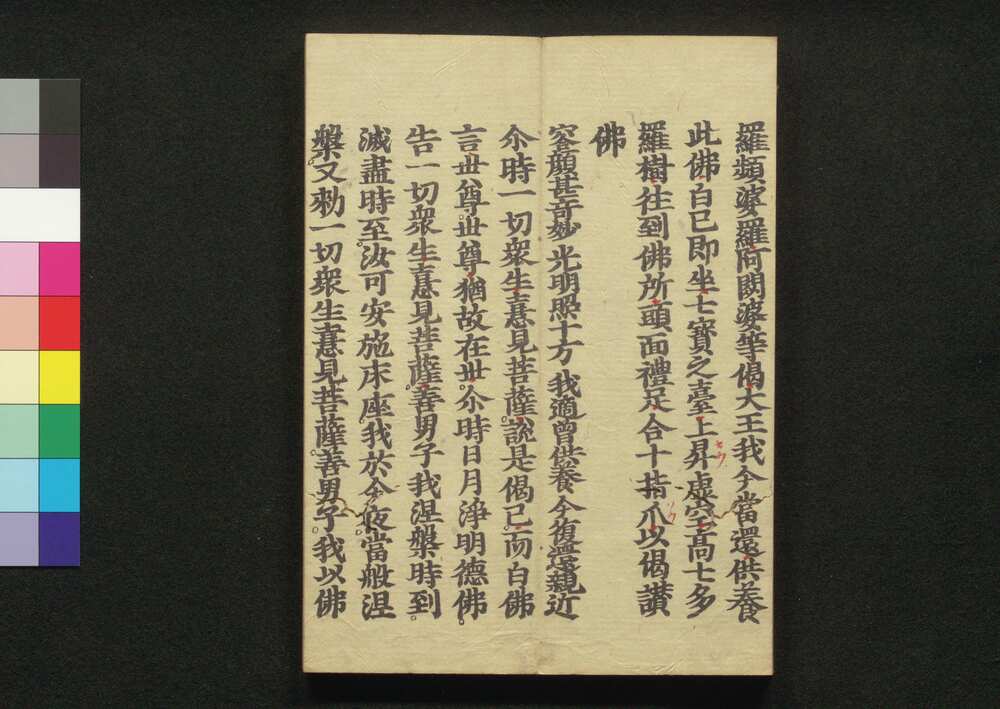 羅頻婆羅阿閦婆等偈大王我今當還供養
此佛白已即坐七寶之臺上昇虛空高七多
羅樹往到佛所頭面禮足合十指爪以偈讃
佛
容顔甚奇妙光明照十方我適曾供養今復還親近
尒時一切衆生憙見菩薩說是偈已而白佛
言世尊世尊猶故在世尒時日月淨明德佛
告一切衆生憙見菩薩善男子我涅槃時到
滅盡時至汝可安施床座我於今夜當般涅
槃又勑一切衆生憙見菩薩善男子我以佛